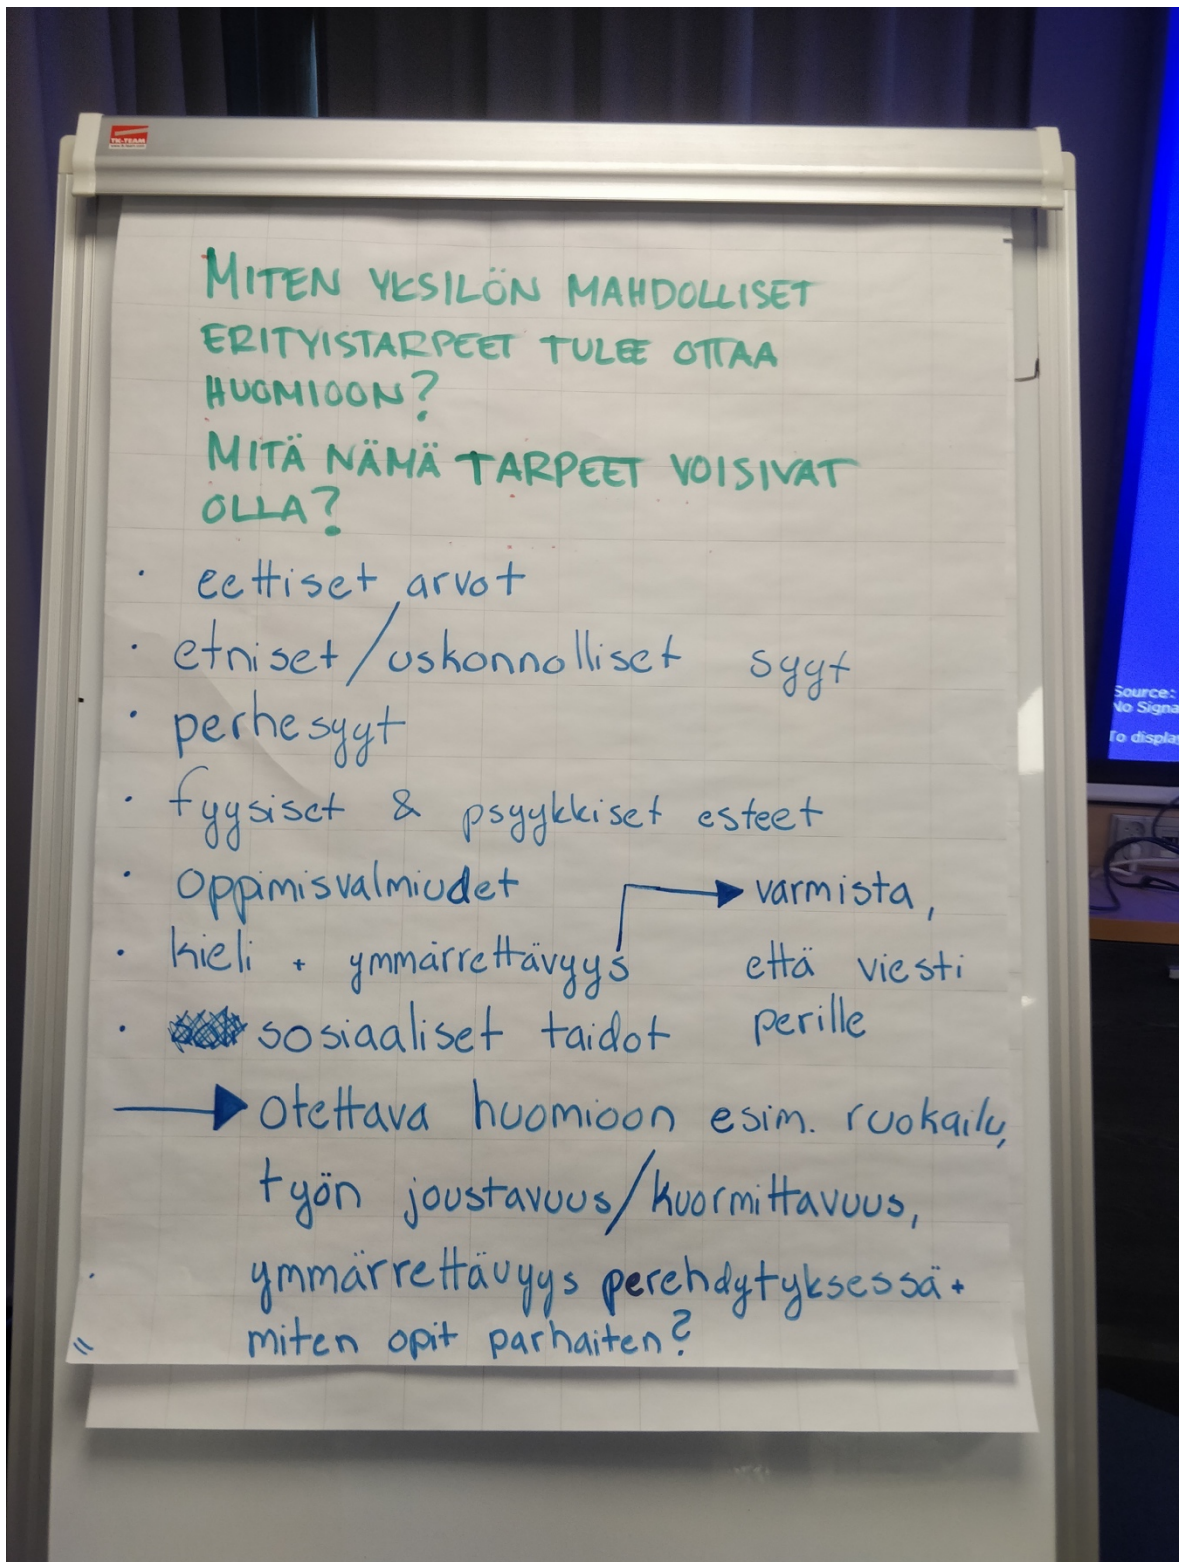 TK-TEAM
MITEN YKSILÖN MAHDOLLISET
ERITYISTARPEET TULEE OTTAA
HUOMIOON?
MITÄ NÄMÄ TARPEET VOISIVAT
OLLA?
• eettiset arvot
• etniset/uskonnolliset syyt
• perhesyyt
• fyysiset & psyykkiset esteet
• oppimisvalmiudet
• kieli + ymmärrettävyys → varmista,
että viesti
perille
• sosiaaliset taidot
→ otettava huomioon esim. ruokailu,
työn joustavuus/kuormittavuus,
ymmärrettävyys perehdytyksessä +
miten opit parhaiten?
Source:
No Signa
To displa